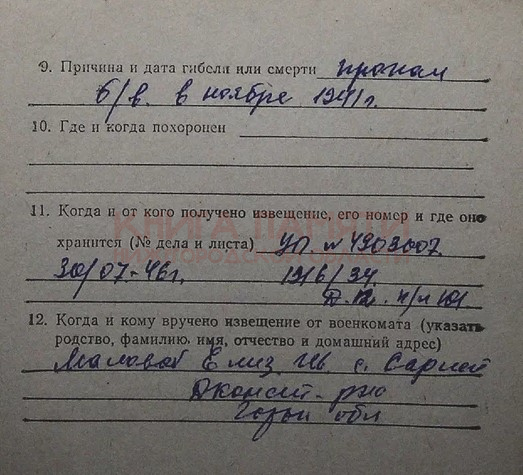 9. Причина и дата гибели или смерти пропал
б/в. в ноябре 1941г.
10. Где и когда похоронен
КНИГА ПАМЯТИ
11. Когда и от кого получено извещение, его номер и где оно
хранится (№ дела и листа) УП. №4903007
30/07-46г.
12. Когда и кому вручено извещение от военкомата (указать
родство, фамилию, имя, отчество и домашний адрес)
Елиз Ив с.
обл